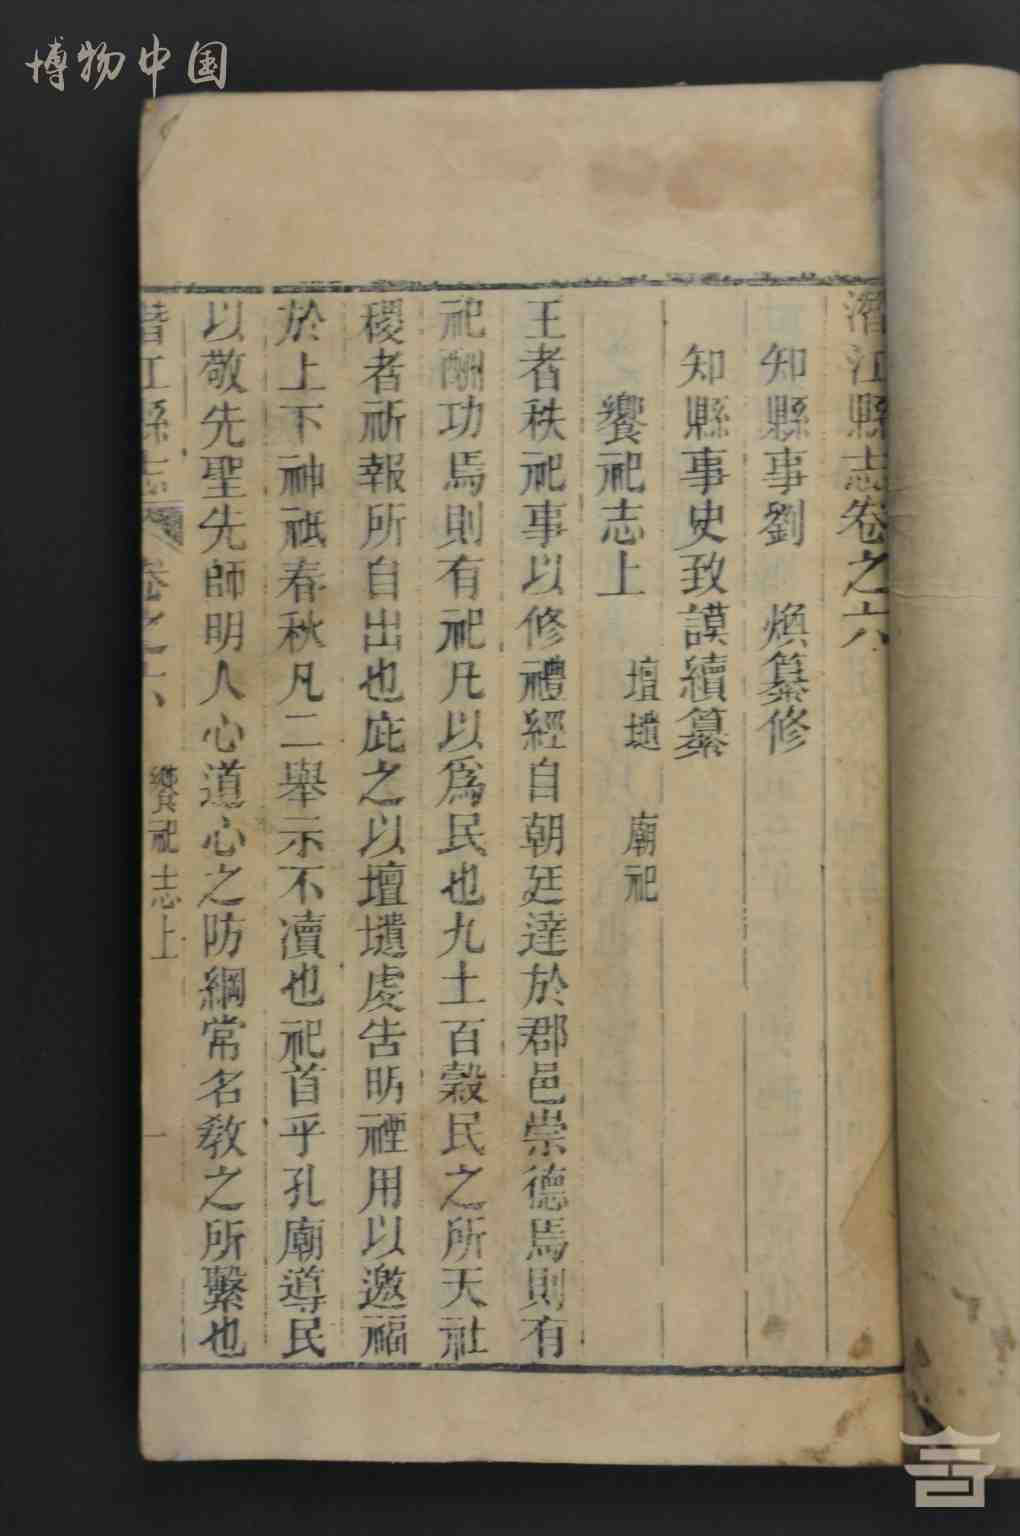 博物中国
潛江縣志卷之六
知縣事劉　煥纂修
知縣事史致謨續纂
饗祀志上　壇壝　廟祀
王者秩祀事以修禮經自朝廷達於郡邑崇德焉則有
祀酬功焉則有祀凡以爲民也九土百穀民之所天社
稷者祈報所自出也庇之以壇壝虔告昞禋用以邀福
於上下神祇春秋凡二舉示不瀆也祀首乎孔廟導民
以敬先聖先師明人心道心之防綱常名教之所繫也
潛江縣志　卷之六　饗祀志上　一